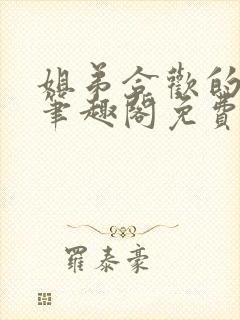 姐弟合歡的
筆趣閣免費
羅泰豪